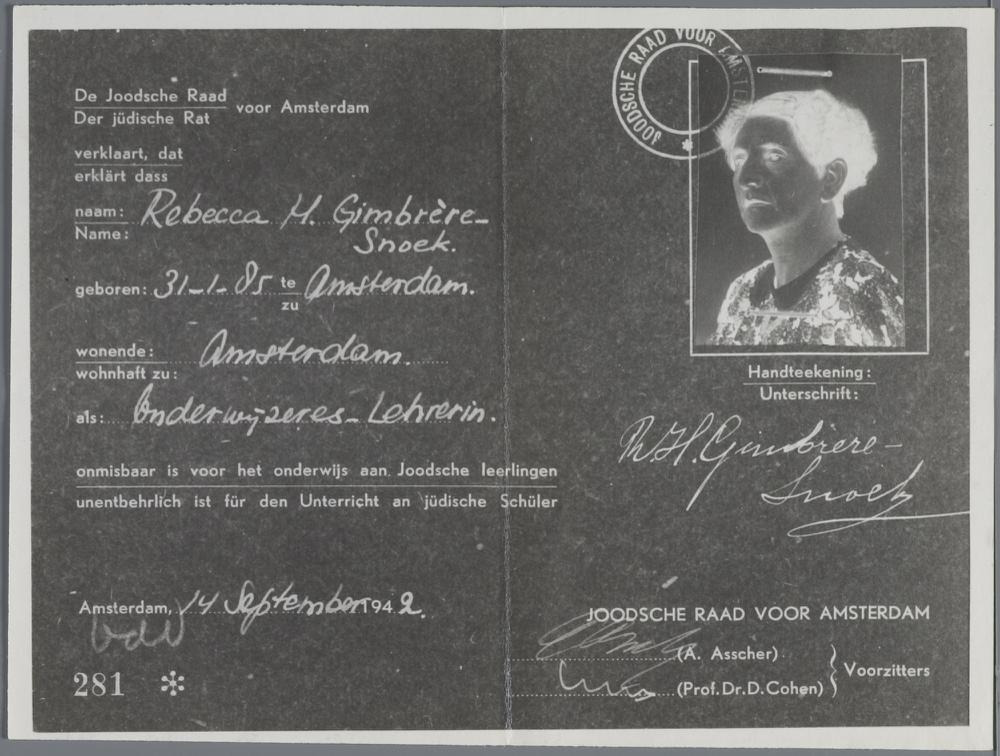 De Joodsche Raad
Der jüdische Rat
voor Amsterdam
verklaart, dat
erklärt dass
naam: Rebecca H. Gimbrère-
Name: Snoek.
geboren: 31-1-85 te Amsterdam.
zu
wonende: Amsterdam.
wohnhaft zu:
als: Onderwijzeres-Lehrerin.
onmisbaar is voor het onderwijs aan Joodsche leerlingen
unentbehrlich ist für den Unterricht an jüdische Schüler
Amsterdam, 14 September 1942.
281 *
JOODSCHE RAAD VOOR AMSTERDAM *
Handteekening:
Unterschrift:
R.H. Gimbrère-
Snoek
JOODSCHE RAAD VOOR AMSTERDAM
(A. Asscher)
(Prof. Dr. D. Cohen)
Voorzitters